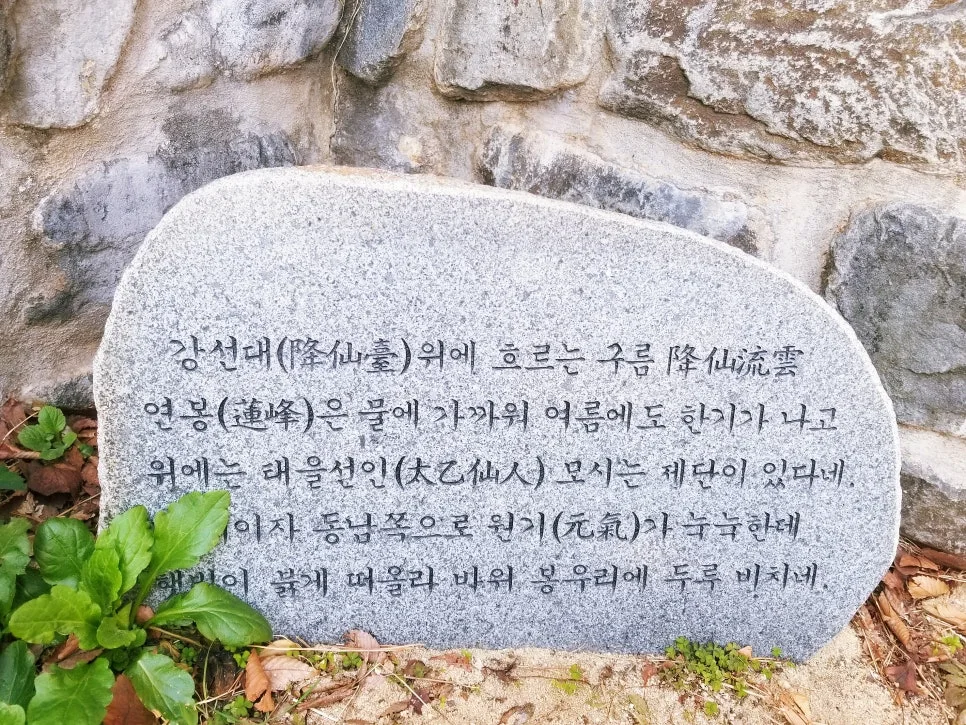 강선대(降仙臺)위에 흐르는 구름 降仙流雲
연봉(蓮峰)은 물에 가까워 여름에도 한기가 나고
위에는 태을선인(太乙仙人) 모시는 제단이 있다네.
동남쪽으로 원기(元氣)가 눅눅한데
붉게 떠올라 바위 봉우리에 두루 비치네.